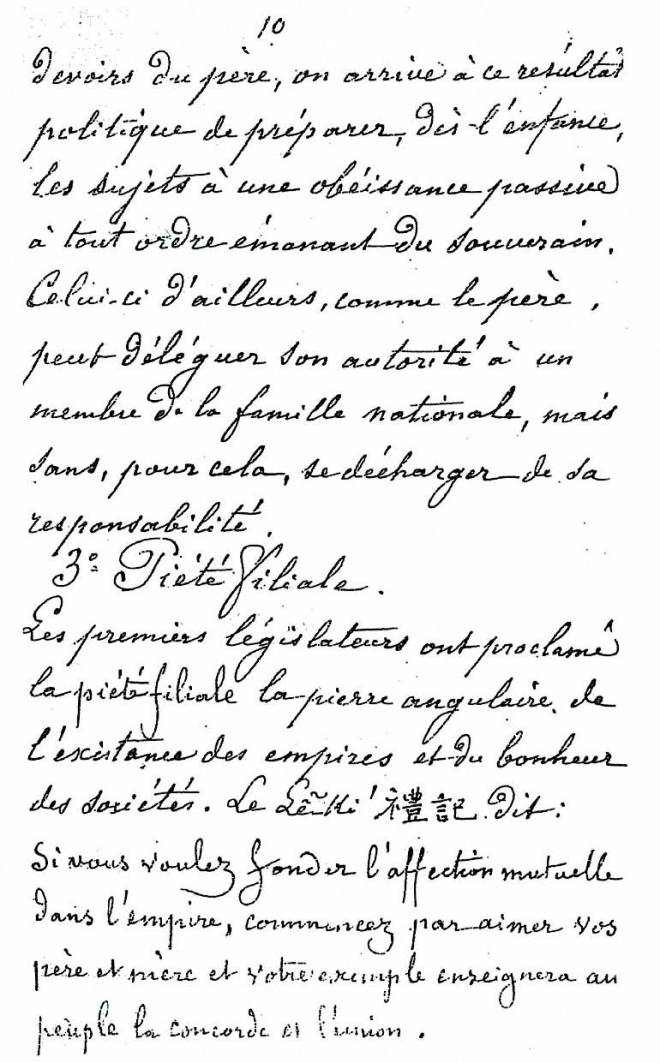 10
devoirs du père, on arrive à ce résultat
politique de préparer, dès l'enfance,
les sujets à une obéissance passive
à tout ordre émanant du souverain.
Celui-ci d'ailleurs, comme le père,
peut déléguer son autorité à un
membre de la famille nationale, mais
sans, pour cela, se décharger de sa
responsabilité.
3° Piété filiale.
Les premiers législateurs ont proclamé
la piété filiale la pierre angulaire de
l'existance des empires et du bonheur
des sociétés. Le Lễ Ki' 禮記 dit:
Si vous voulez fonder l'affection mutuelle
dans l'empire, commencez par aimer vos
père et mère et votre exemple enseignera au
peuple la concorde et l'union.